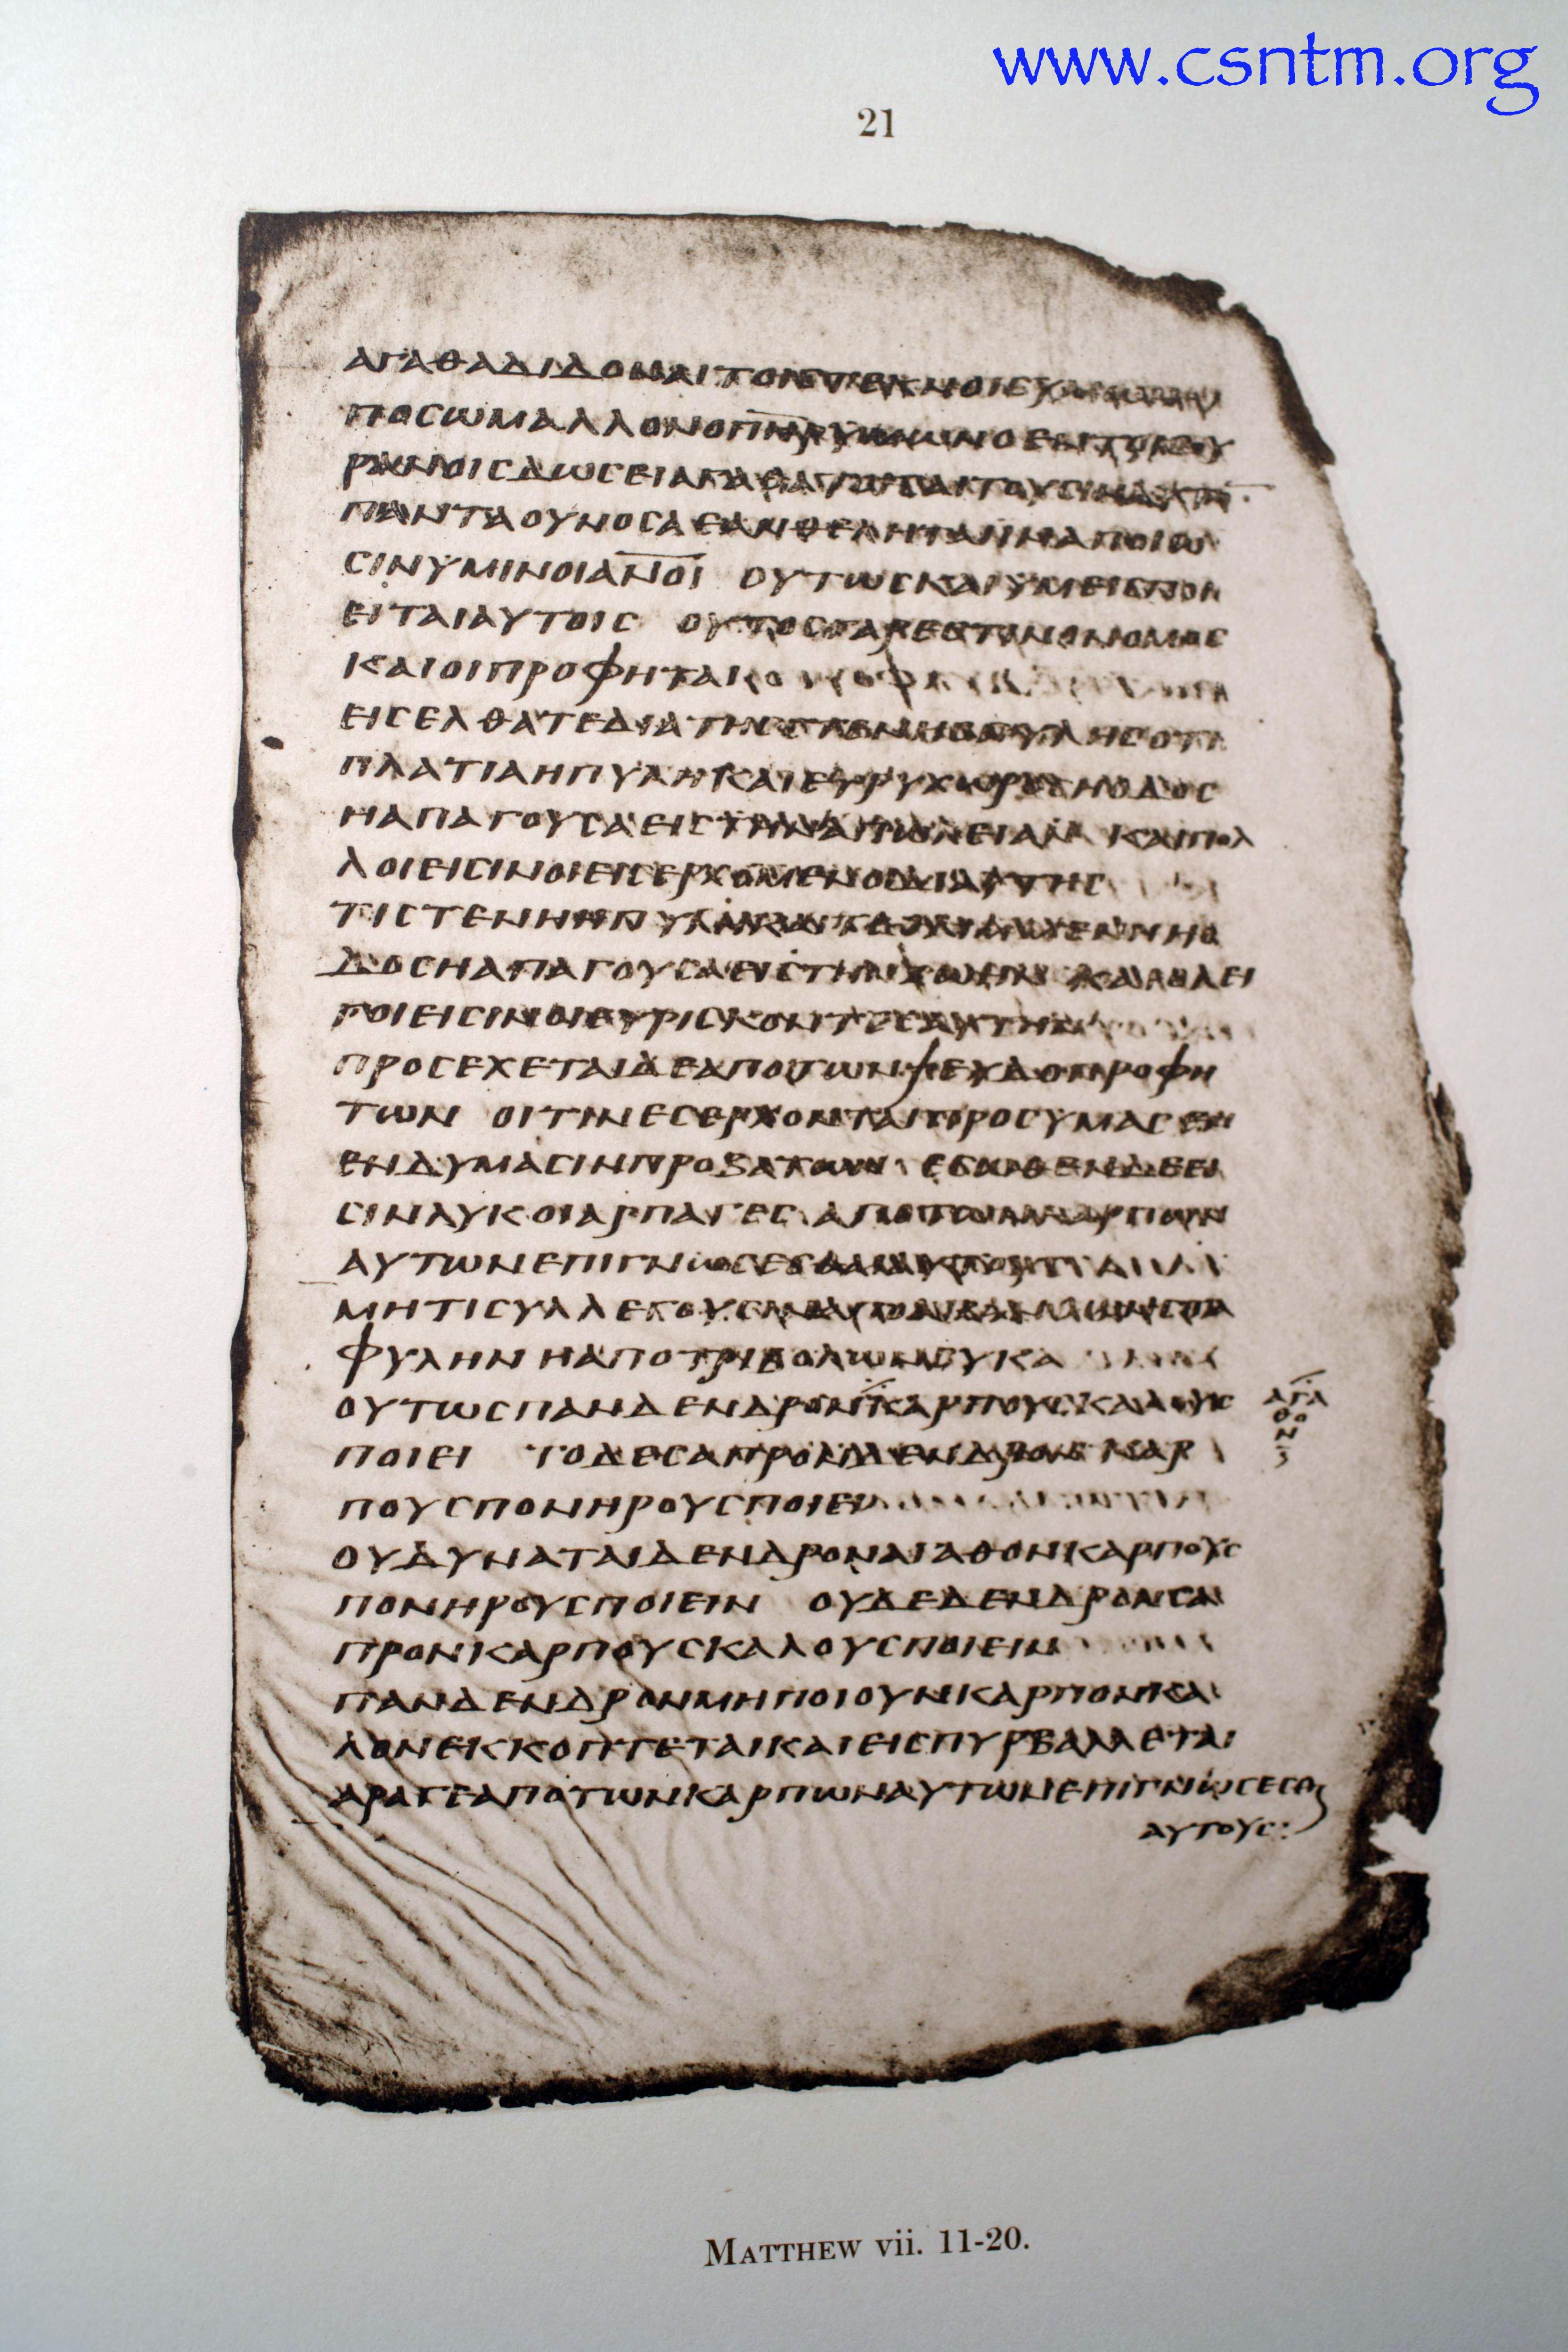 www.csntm.org
21
ΑΓΑΘΑΔΙΔΟΝΑΙΤΟΙΣΤΕΚΝΟΙΣ
ΠΟΣΩΜΑΛΛΟΝΟΠΗΡΥΜΩΝΟΕΝΤΟΙΣΟΥ
ΡΑΝΟΙΣΔΩΣΕΙΑΓΑΘΑ
ΠΑΝΤΑΟΥΝΟΣΑΕΑΝΘΕΛΗΤΑΙΙΝΑΠΟΙΩ
ΣΙΝΥΜΙΝΟΙΑΝΟΙ ΟΥΤΩΣΚΑΙΥΜΕΙΣΠΟΙ
ΕΙΤΑΙΑΥΤΟΙΣ ΟΥΤΟΣΓΑΡΕΣΤΙΝΟΝΟΜΟΣ
ΚΑΙΟΙΠΡΟΦΗΤΑΙ
ΕΙΣΕΛΘΑΤΕΔΙΑΤΗΣΣΤΕΝΗΣΠΥΛΗΣΟΤΙ
ΠΛΑΤΙΑΗΠΥΛΗΚΑΙΕΥΡΥΧΩΡΟΣΗΟΔΟΣ
ΗΑΠΑΓΟΥΣΑΕΙΣΤΗΝΑΠΩΛΕΙΑΝ ΚΑΙΠΟΛ
ΛΟΙΕΙΣΙΝΟΙΕΙΣΕΡΧΟΜΕΝΟΙΔΙΑΥΤΗΣ
ΤΙΣΤΕΝΗΗΠΥΛΗ
ΔΟΣΗΑΠΑΓΟΥΣΑΕΙΣΤΗΝΖΩΗΝ ΚΑΙΟΛΕΙ
ΓΟΙΕΙΣΙΝΟΙΕΥΡΙΣΚΟΝΤΕΣΑΥΤΗΝ
ΠΡΟΣΕΧΕΤΑΙΔΕΑΠΟΤΩΝΨΕΥΔΟΠΡΟΦΗ
ΤΩΝ ΟΙΤΙΝΕΣΕΡΧΟΝΤΑΙΠΡΟΣΥΜΑΣΕΝ
ΕΝΔΥΜΑΣΙΝΠΡΟΒΑΤΩΝ ΕΣΩΘΕΝΔΕΕΙ
ΣΙΝΛΥΚΟΙΑΡΠΑΓΕΣ ΑΠΟΤΩΝΚΑΡΠΩΝ
ΑΥΤΩΝΕΠΙΓΝΩΣΕΣΘΑΙΑΥΤΟΥΣ
ΜΗΤΙΣΥΛΛΕΓΟΥΣΙΝΑΠΟΑΚΑΝΘΩΝΣΤΑ
ΦΥΛΗΝΗΑΠΟΤΡΙΒΟΛΩΝΣΥΚΑ
ΟΥΤΩΣΠΑΝΔΕΝΔΡΟΝΚΑΡΠΟΥΣΚΑΛΟΥΣ ΑΓΑ
ΘΟ
Ν
ΠΟΙΕΙ ΤΟΔΕΣΑΠΡΟΝΔΕΝΔΡΟΝΚΑΡ
ΠΟΥΣΠΟΝΗΡΟΥΣΠΟΙΕΙ
ΟΥΔΥΝΑΤΑΙΔΕΝΔΡΟΝΑΓΑΘΟΝΚΑΡΠΟΥΣ
ΠΟΝΗΡΟΥΣΠΟΙΕΙΝ ΟΥΔΕΔΕΝΔΡΟΝΣΑ
ΠΡΟΝΚΑΡΠΟΥΣΚΑΛΟΥΣΠΟΙΕΙΝ
ΠΑΝΔΕΝΔΡΟΝΜΗΠΟΙΟΥΝΚΑΡΠΟΝΚΑ
ΛΟΝΕΚΚΟΠΤΕΤΑΙΚΑΙΕΙΣΠΥΡΒΑΛΛΕΤΑΙ
ΑΡΑΓΕΑΠΟΤΩΝΚΑΡΠΩΝΑΥΤΩΝΕΠΙΓΝΩΣΕΣΘΑΙ
ΑΥΤΟΥΣ:
MATTHEW vii. 11-20.